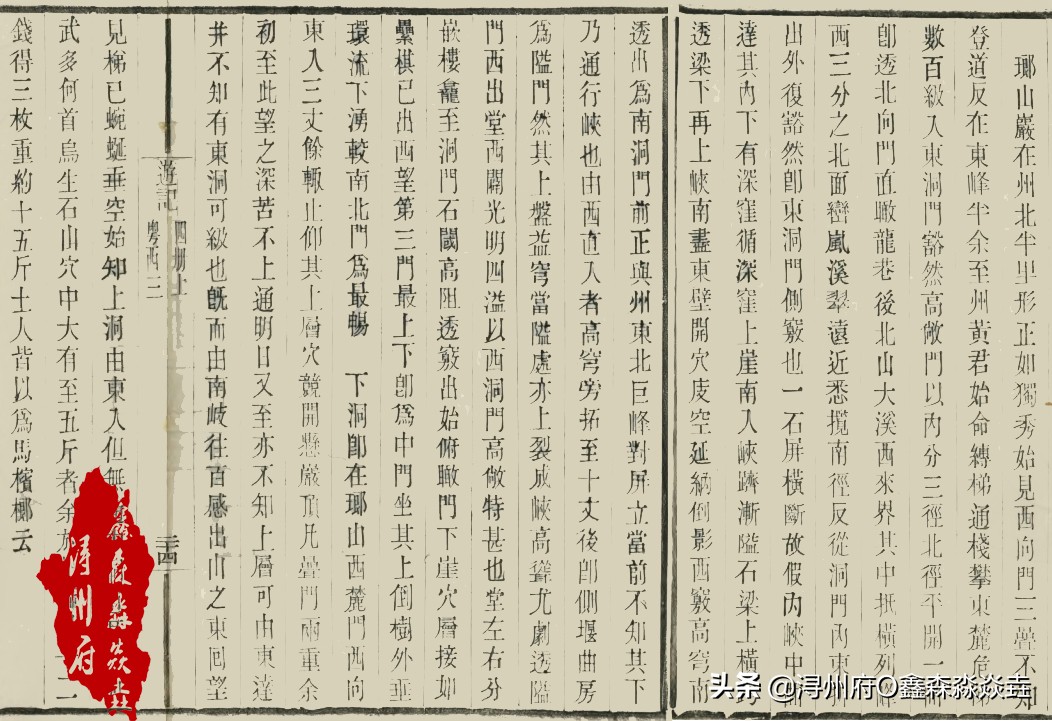 瑯山巖在州北半里形正如獨秀始見西向門三疊不知
登道反在東峰半余至州黃君始命縛梯通棧攀東麓危梯
數百級入東洞門豁然高敞門以內分三徑北徑平開一
卽透北向門直瞰龍巷後北山大溪西來界其中抵橫列
西三分之北面巒嵐溪翠遠近悉攬南徑反從洞門內東
出外復豁然卽東洞門側竅也一石屏橫斷故假內峽中
達其內下有深窪循深窪上崖南入峽躋漸隘石梁上橫
透梁下再上峽南盡東壁開穴庋空延納倒影西竅高穹南
透出爲南洞門前正與州東北巨峰對屏立當前不知其下
乃通行峽也由西直入者高穹旁拓至十丈後卽側堰曲房
爲隘門然其上盤益穹當隘處亦上裂成峽高聳尤劇透隘
門西出堂西闢光明四溢以西洞門高敞特甚也堂左右分
嵌樓龕至洞門石閾高阻透竅出始俯瞰門下崖穴層接如
疊棋已出西望第三門最上下卽爲中門坐其上倒樹外垂
環流下湧較南北門爲最暢　下洞卽在瑯山西麓門西向
東入三丈餘輒止仰其上層穴競開懸巖頂凡疊門兩重余
初至此望之深苦不上通明日又至亦不知上層可由東達
幷不知有東洞可級也旣而由南岐往百感出山之東回望
遊記
四冊上
粵西三
見梯已蜿蜒垂空始知上洞由東入但無
武多何首烏生石山穴中大有至五斤者余
錢得三枚重約十五斤土人皆以爲馬檳榔云
鑫森淼焱垚
潯州府
头条 @浔州府O鑫森淼焱垚